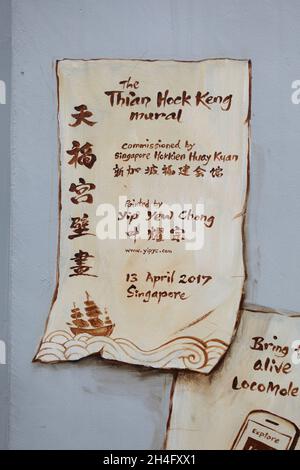 The
Thian Hock Keng
mural
天福宫壁畫
commissioned by
Singapore Hokkien Huay Kuan
新加坡福建会馆
Painted by
Yip Yew Chong
叶耀宗
www.yipyc.com
13 April 2017
Singapore
Bring
alive
LocoMole
Explore
alamy
Image ID: 2H4FXX1
www.alamy.com